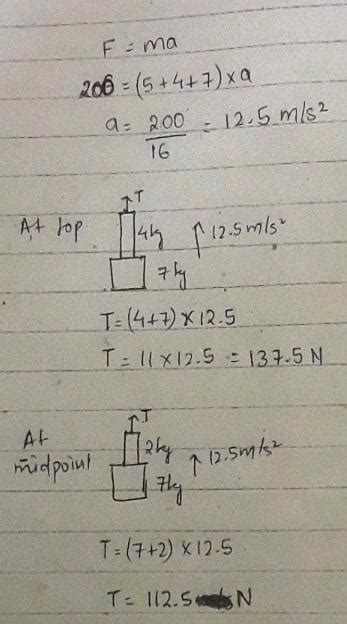 F = ma
200 = (5+4+7) x a
a = 200/16 = 12.5 m/s²
At top
T
4kg
12.5 m/s²
7kg
T = (4+7) x 12.5
T = 11 x 12.5 = 137.5 N
At midpoint
T
2kg
12.5 m/s²
7kg
T = (7+2) x 12.5
T = 112.5 N